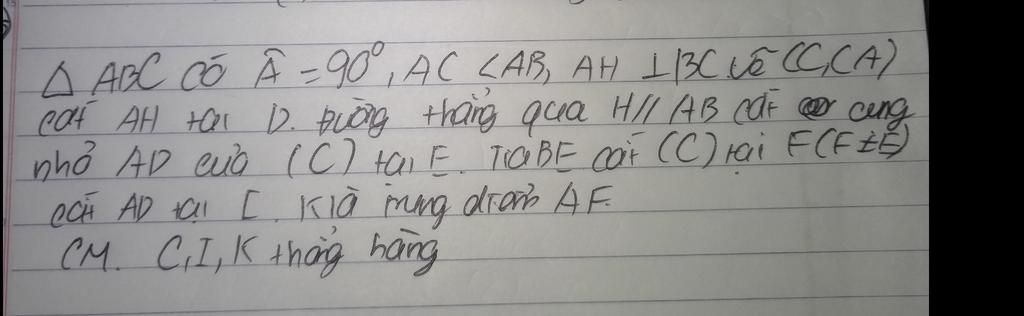 △ ABC có Â = 90⁰, AC < AB, AH ⊥ BC vẽ (C, CA)
cắt AH tại D. Đường thẳng qua H // AB cắt cung
nhỏ AD của (C) tại E. Tia BE cắt (C) tại F (F ≠ E)
cắt AD tại I. K là trung điểm AF.
CM. C, I, K thẳng hàng